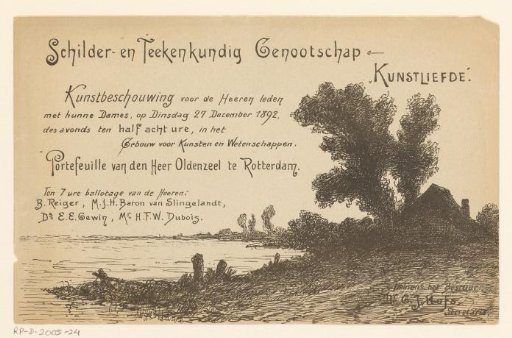 Schilder- en Teekenkundig Genootschap
"KUNSTLIEFDE".
Kunstbeschouwing voor de Heeren leden
met hunne Dames, op Dinsdag 27 December 1892,
des avonds ten half acht ure, in het
Gebouw voor Kunsten en Wetenschappen.
Portefeuille van den Heer Oldenzeel te Rotterdam.
Ten 7 ure ballotage van de Heeren:
B. Reiger, M.J.H. Baron van Slingelandt,
Dr. E.E. Gewin, Mr. H.F.W. Dubois.
Namens het Bestuur
G.J. Hofs.
Secretaris
RP-D-2005-24